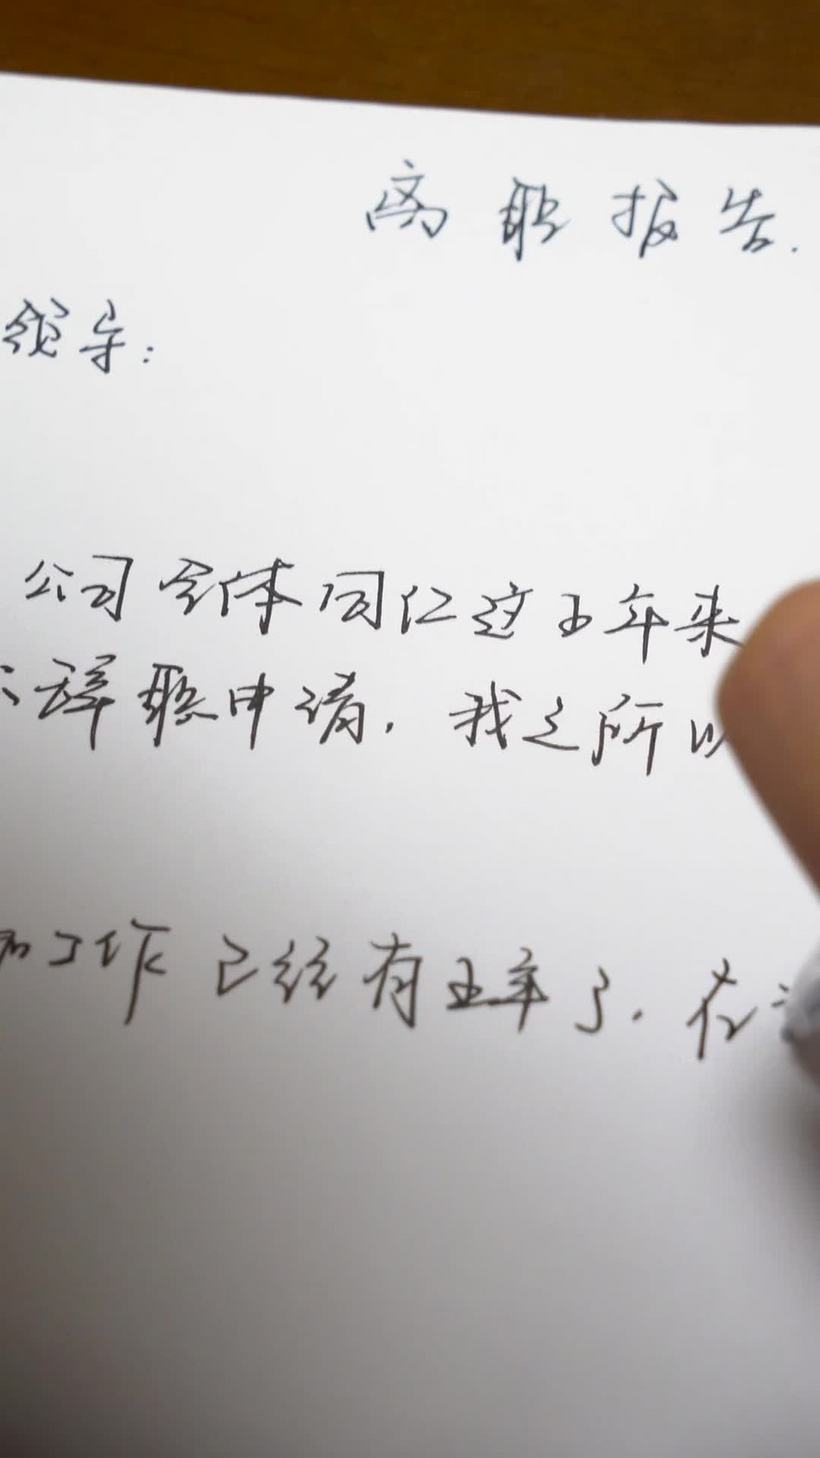 离职报告.
领导:
公司全体同仁这五年来
辞职申请. 我之所以
工作已经有五年了. 在